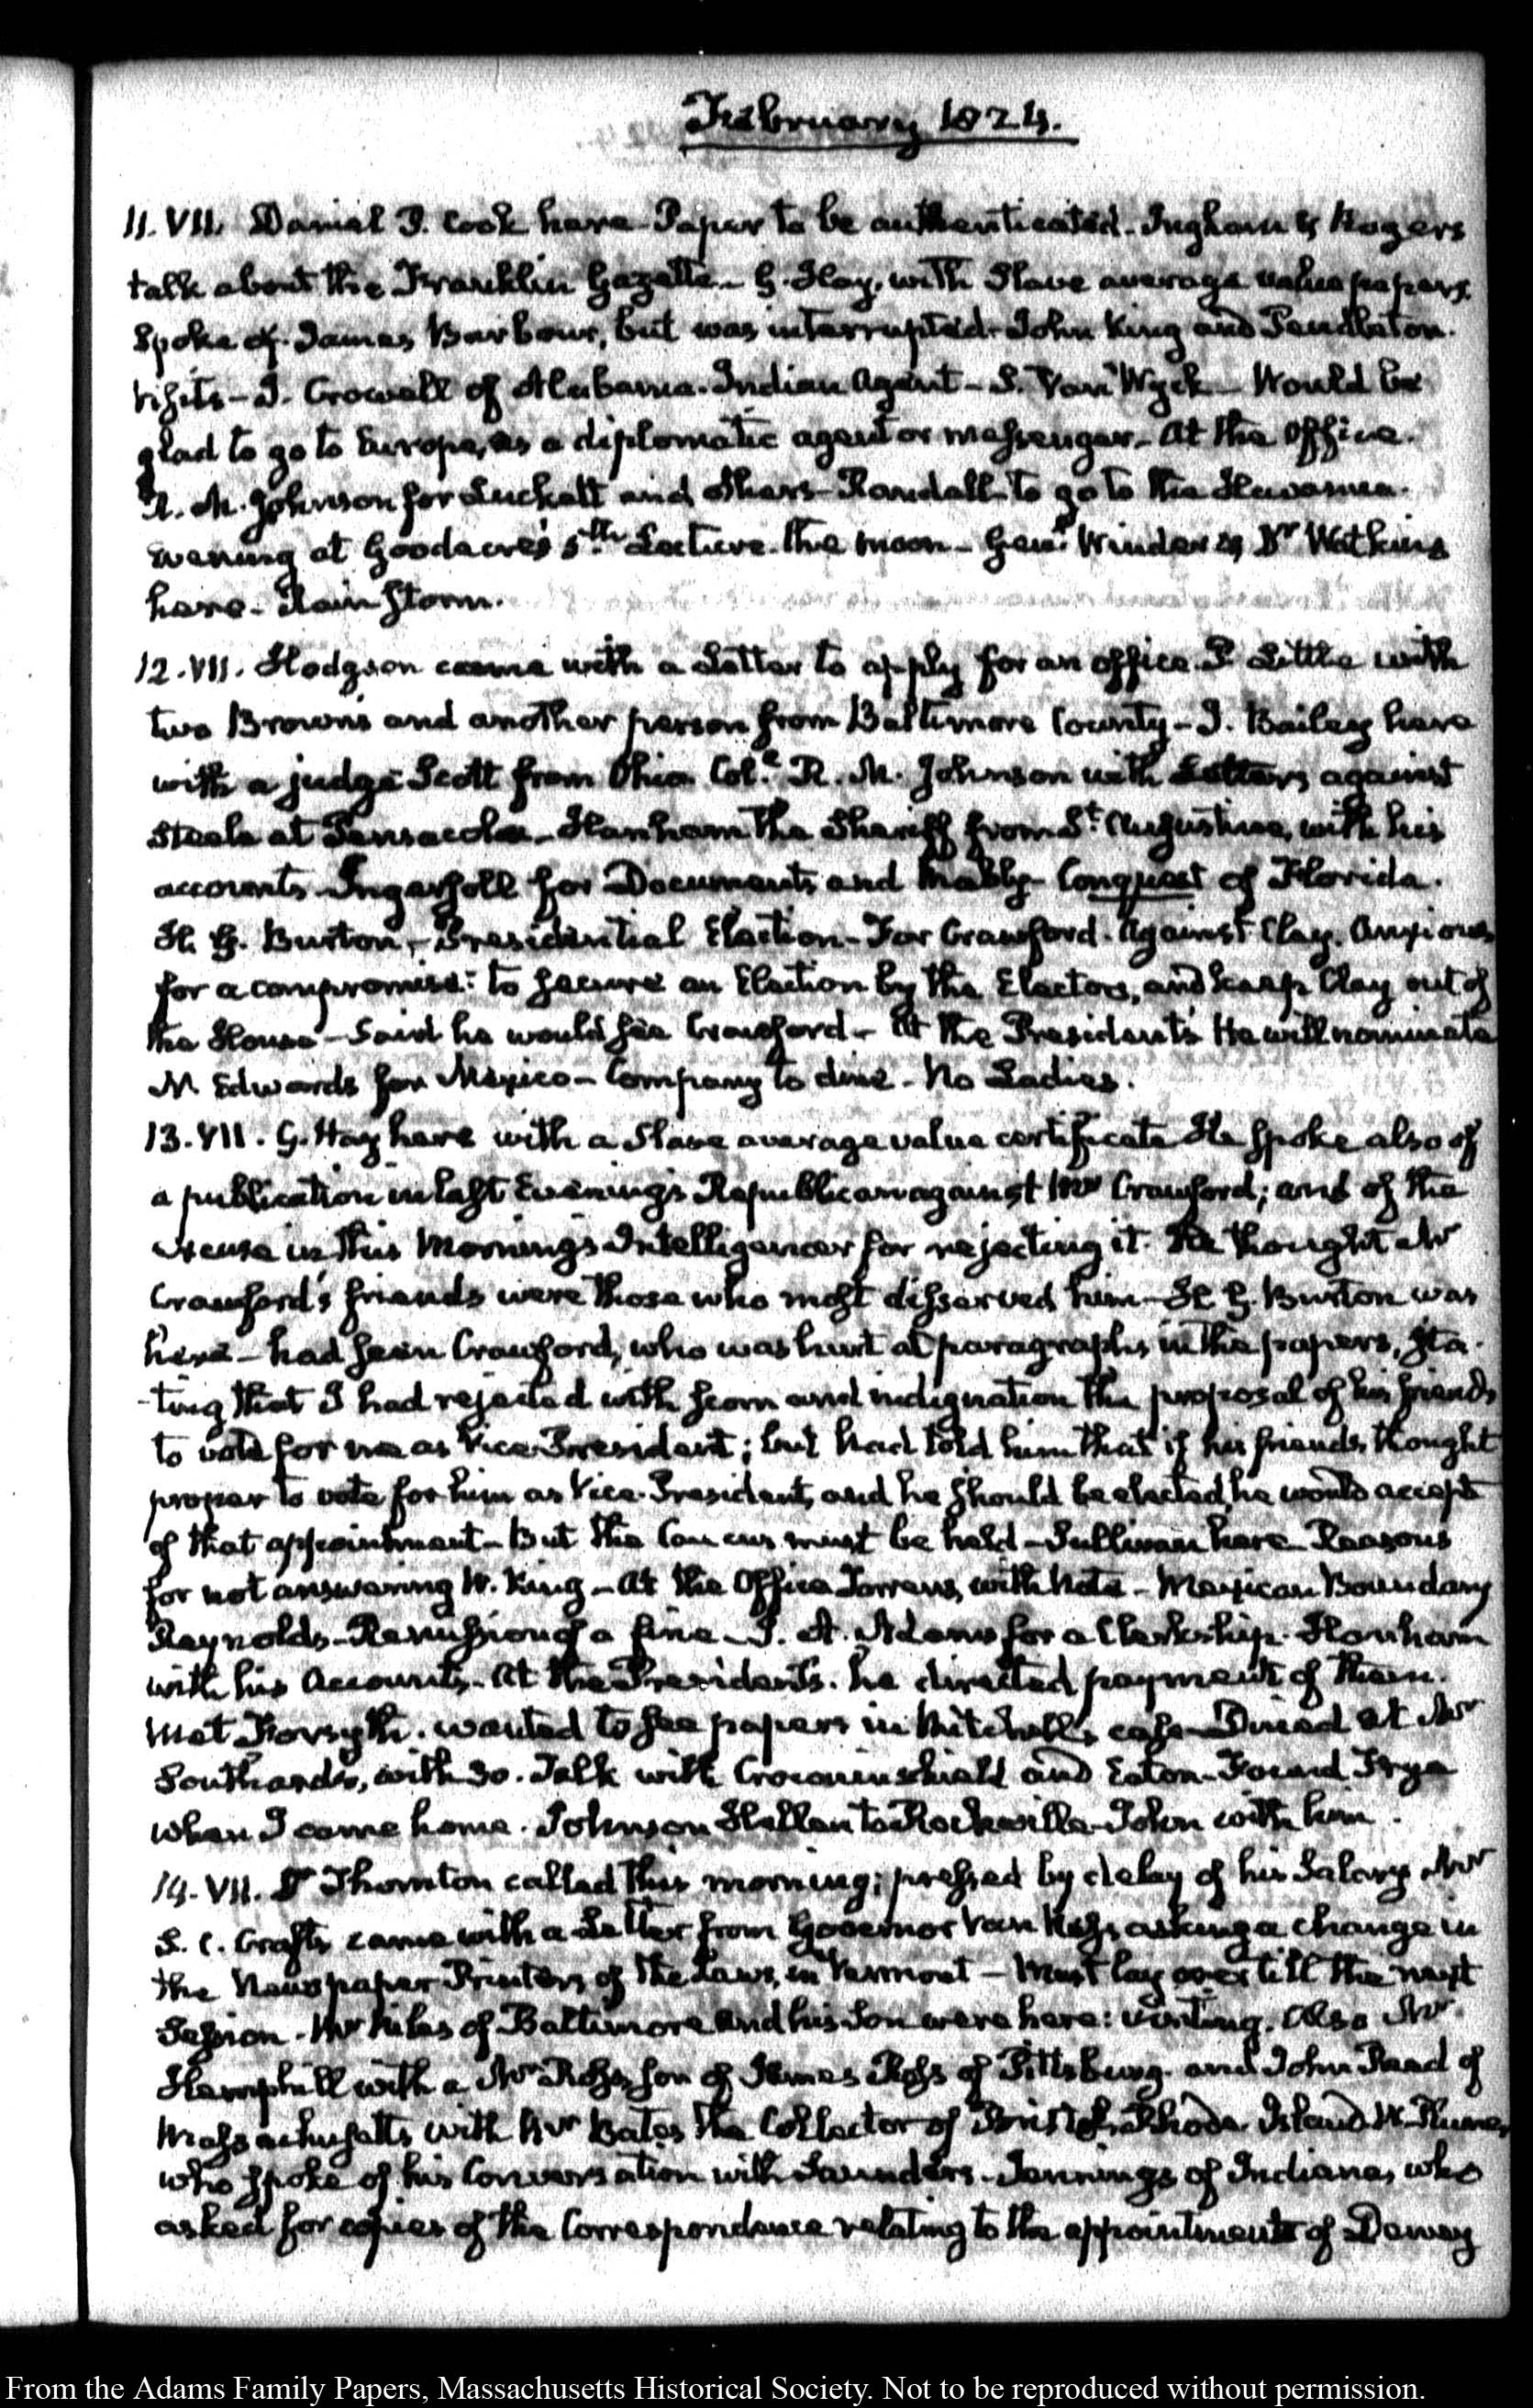 February 1824.
11. VII. Daniel P. Cook here. Paper to be authenticated. Ingham & Rogers
talk about the Franklin Gazette. G. Hay, with Slave average value papers.
Spoke of James Barbour, but was interrupted. John King and Pendleton.
Visits — J. Crowell of Alabama. Indian Agent — S. Van Wyck — Would be
glad to go to Europe, as a diplomatic agent or messenger. At the office.
R. M. Johnson for Luckett and others — Randall to go to the Havanna.
Evening at Goodacre's 5th Lecture. the moon — Genl. Winder & Dr Watkins
here — Rain Storm.
12. VII. Hodgson came with a Letter to apply for an office P. Little with
two Browns and another person from Baltimore County — J. Bailey here
with a judge Scott from Ohio Coll. R. M. Johnson with Letters against
Steele at Pensacola — Hanham the Sheriff from St. Augustine, with his
accounts. Ingersoll for Documents and Mably — Conquest of Florida.
H. G. Burton, — Presidential Election — For Crawford. Against Clay. Anxious
for a compromise: to secure an Election by the Electors, and keep Clay out of
the House — Said he would see Crawford — At the President's He will nominate
N. Edwards for Mexico — Company to dine — No Ladies.
13. VII. G. Hay here with a Slave average value certificate He spoke also of
a publication in last Evening's Republican against Mr Crawford; and of the
excuse in this Morning's Intelligencer for rejecting it. He thought Mr
Crawford's friends were those who most disserved him — H G. Burton was
here — had seen Crawford, who was hurt at paragraphs in the papers, sta-
-ting that I had rejected with scorn and indignation the proposal of his friends
to vote for me as Vice-President; but had told him that if his friends thought
proper to vote for him as Vice-President, and he should be elected, he would accept
of that appointment — But the Caucus must be held — Sullivan here Reasons
for not answering W. King — At the Office Torrens, with Note — Mexican Boundary
Reynolds — Remission of a fine — J. A. Adams for a Clerkship. Hanham
with his Accounts. At the President's. he directed payment of them.
Met Forsyth. wanted to see papers in Mitchell's case — Dined at Mr
Southard's, with 30. Talk with Crowninshield and Eaton — Found Frye
when I came home. Johnson Hellen to Rockville — John with him.
14. VII. Dr Thornton called this morning; pressed by delay of his Salary Mr
S. C. Crafts came with a Letter from Governor Van Ness, asking a change in
the Newspaper Printers of the Laws, in Vermont — Must lay over till the next
Session. Mr Niles of Baltimore and his Son were here: visiting. Also Mr
Hemphill with a Mr Ross, son of James Ross of Pittsburg. and John Reed of
Massachusetts with Mr Bates the Collector of Bristol, Rhode Island W. Plumer,
who spoke of his Conversation with Saunders. Jennings of Indiana, who
asked for copies of the Correspondence relating to the appointments of Dewey
From the Adams Family Papers, Massachusetts Historical Society. Not to be reproduced without permission.